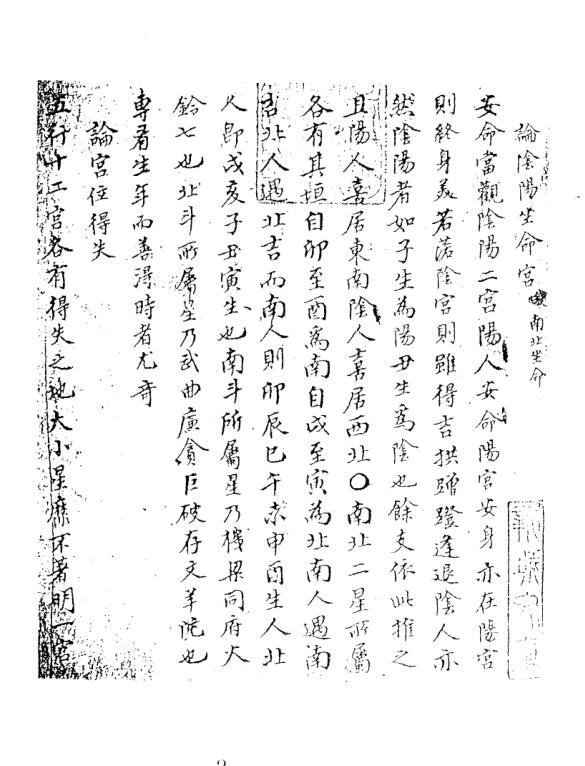 論陰陽生命宮 南北生命
安命當觀陰陽二宮陽人安命陽宮安身亦在陽宮
則終身美若落陰宮則雖得吉拱蹭蹬逢退陰人亦
然陰陽者如子生為陽丑生為陰也餘支依此推之
且陽人喜居東南陰人喜居西北〇南北二星所屬
各有其垣自卯至酉為南自戌至寅為北南人遇南
吉北人遇北吉而南人則卯辰巳午未申酉生人北
人即戌亥子丑寅生也南斗所屬星乃機梁同府火
鈴七也北斗所屬星乃武曲廉貪巨破存文羊陀也
專看生年而善得時者尤奇
論宮位得失
五行十二宮各有得失之地大小星麻不著明一宮